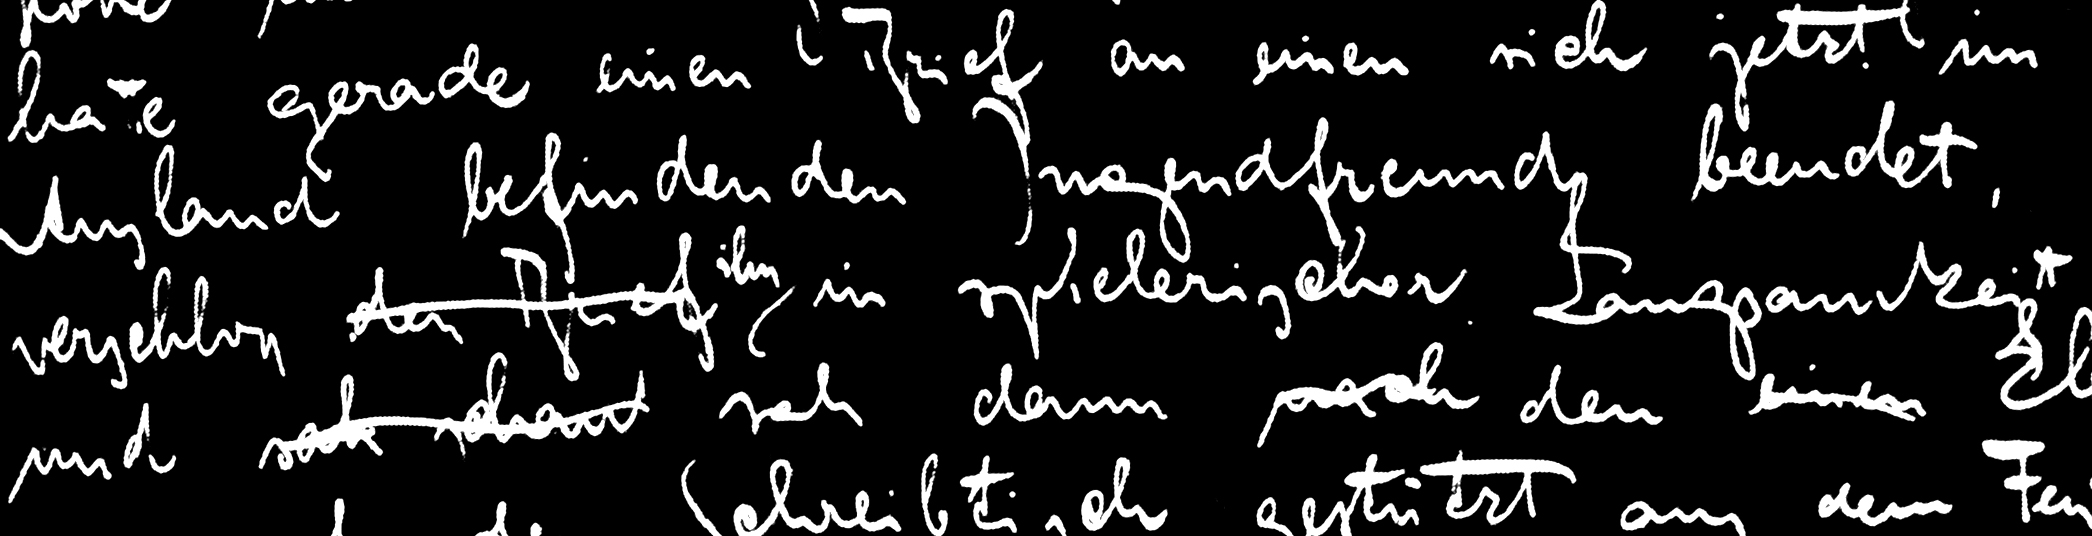 hatte gerade einen Brief an einen sich jetzt im
Ausland befindenden Jugendfreund beendet,
verschloss den Brief ihn in spielerischer Langsamkeit
und sah dann den einen El
Schreibtisch gestützt aus dem Fen